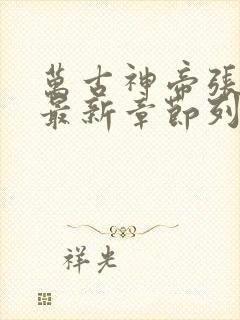 萬古神帝張
最新章節列
祥光